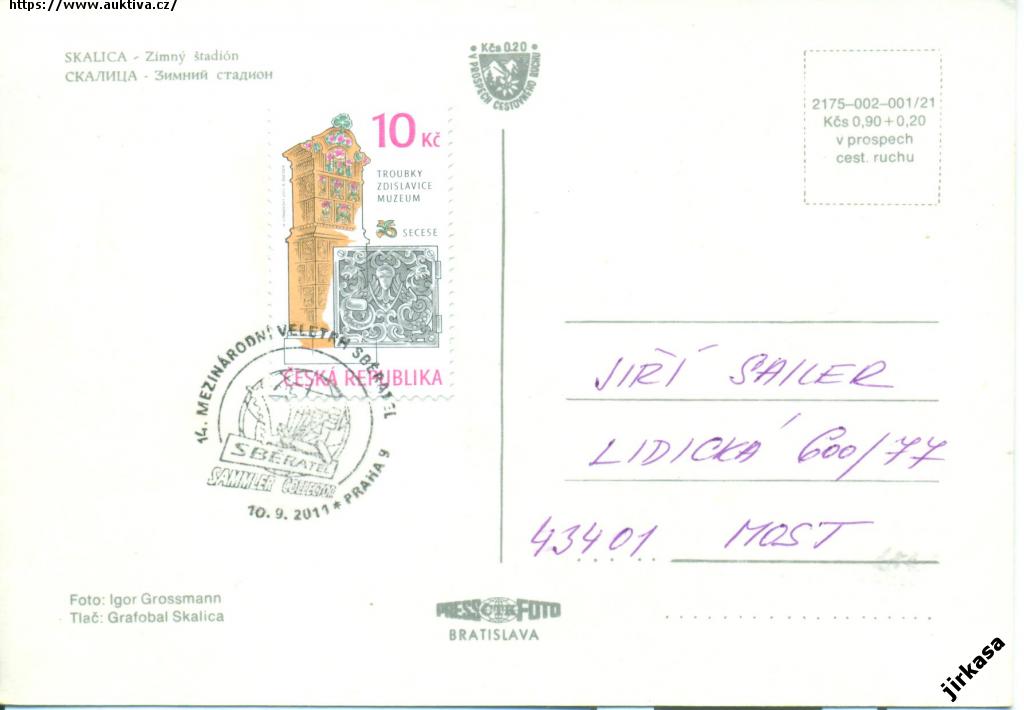 https://www.auktiva.cz/
SKALICA - Zimný štadión
СКАЛИЦА - Зимний стадион
Kčs 0.20
V PROSPECH CESTOVNÉHO RUCHU
2175-002-001/21
Kčs 0,90 + 0,20
v prospech
cest. ruchu
10 Kč
TROUBKY
ZDISLAVICE
MUZEUM
SECESE
ČESKÁ REPUBLIKA
14. MEZINÁRODNÍ VELETRH SBĚRATEL
SBĚRATEL
SAMMLER COLLECTOR
10.9.2011 * PRAHA 9
JIŘÍ SAILER
LIDICKÁ 600/77
43401 MOST
Foto: Igor Grossmann
Tlač: Grafobal Skalica
PRESS ČTK FOTO
BRATISLAVA
jirkasa